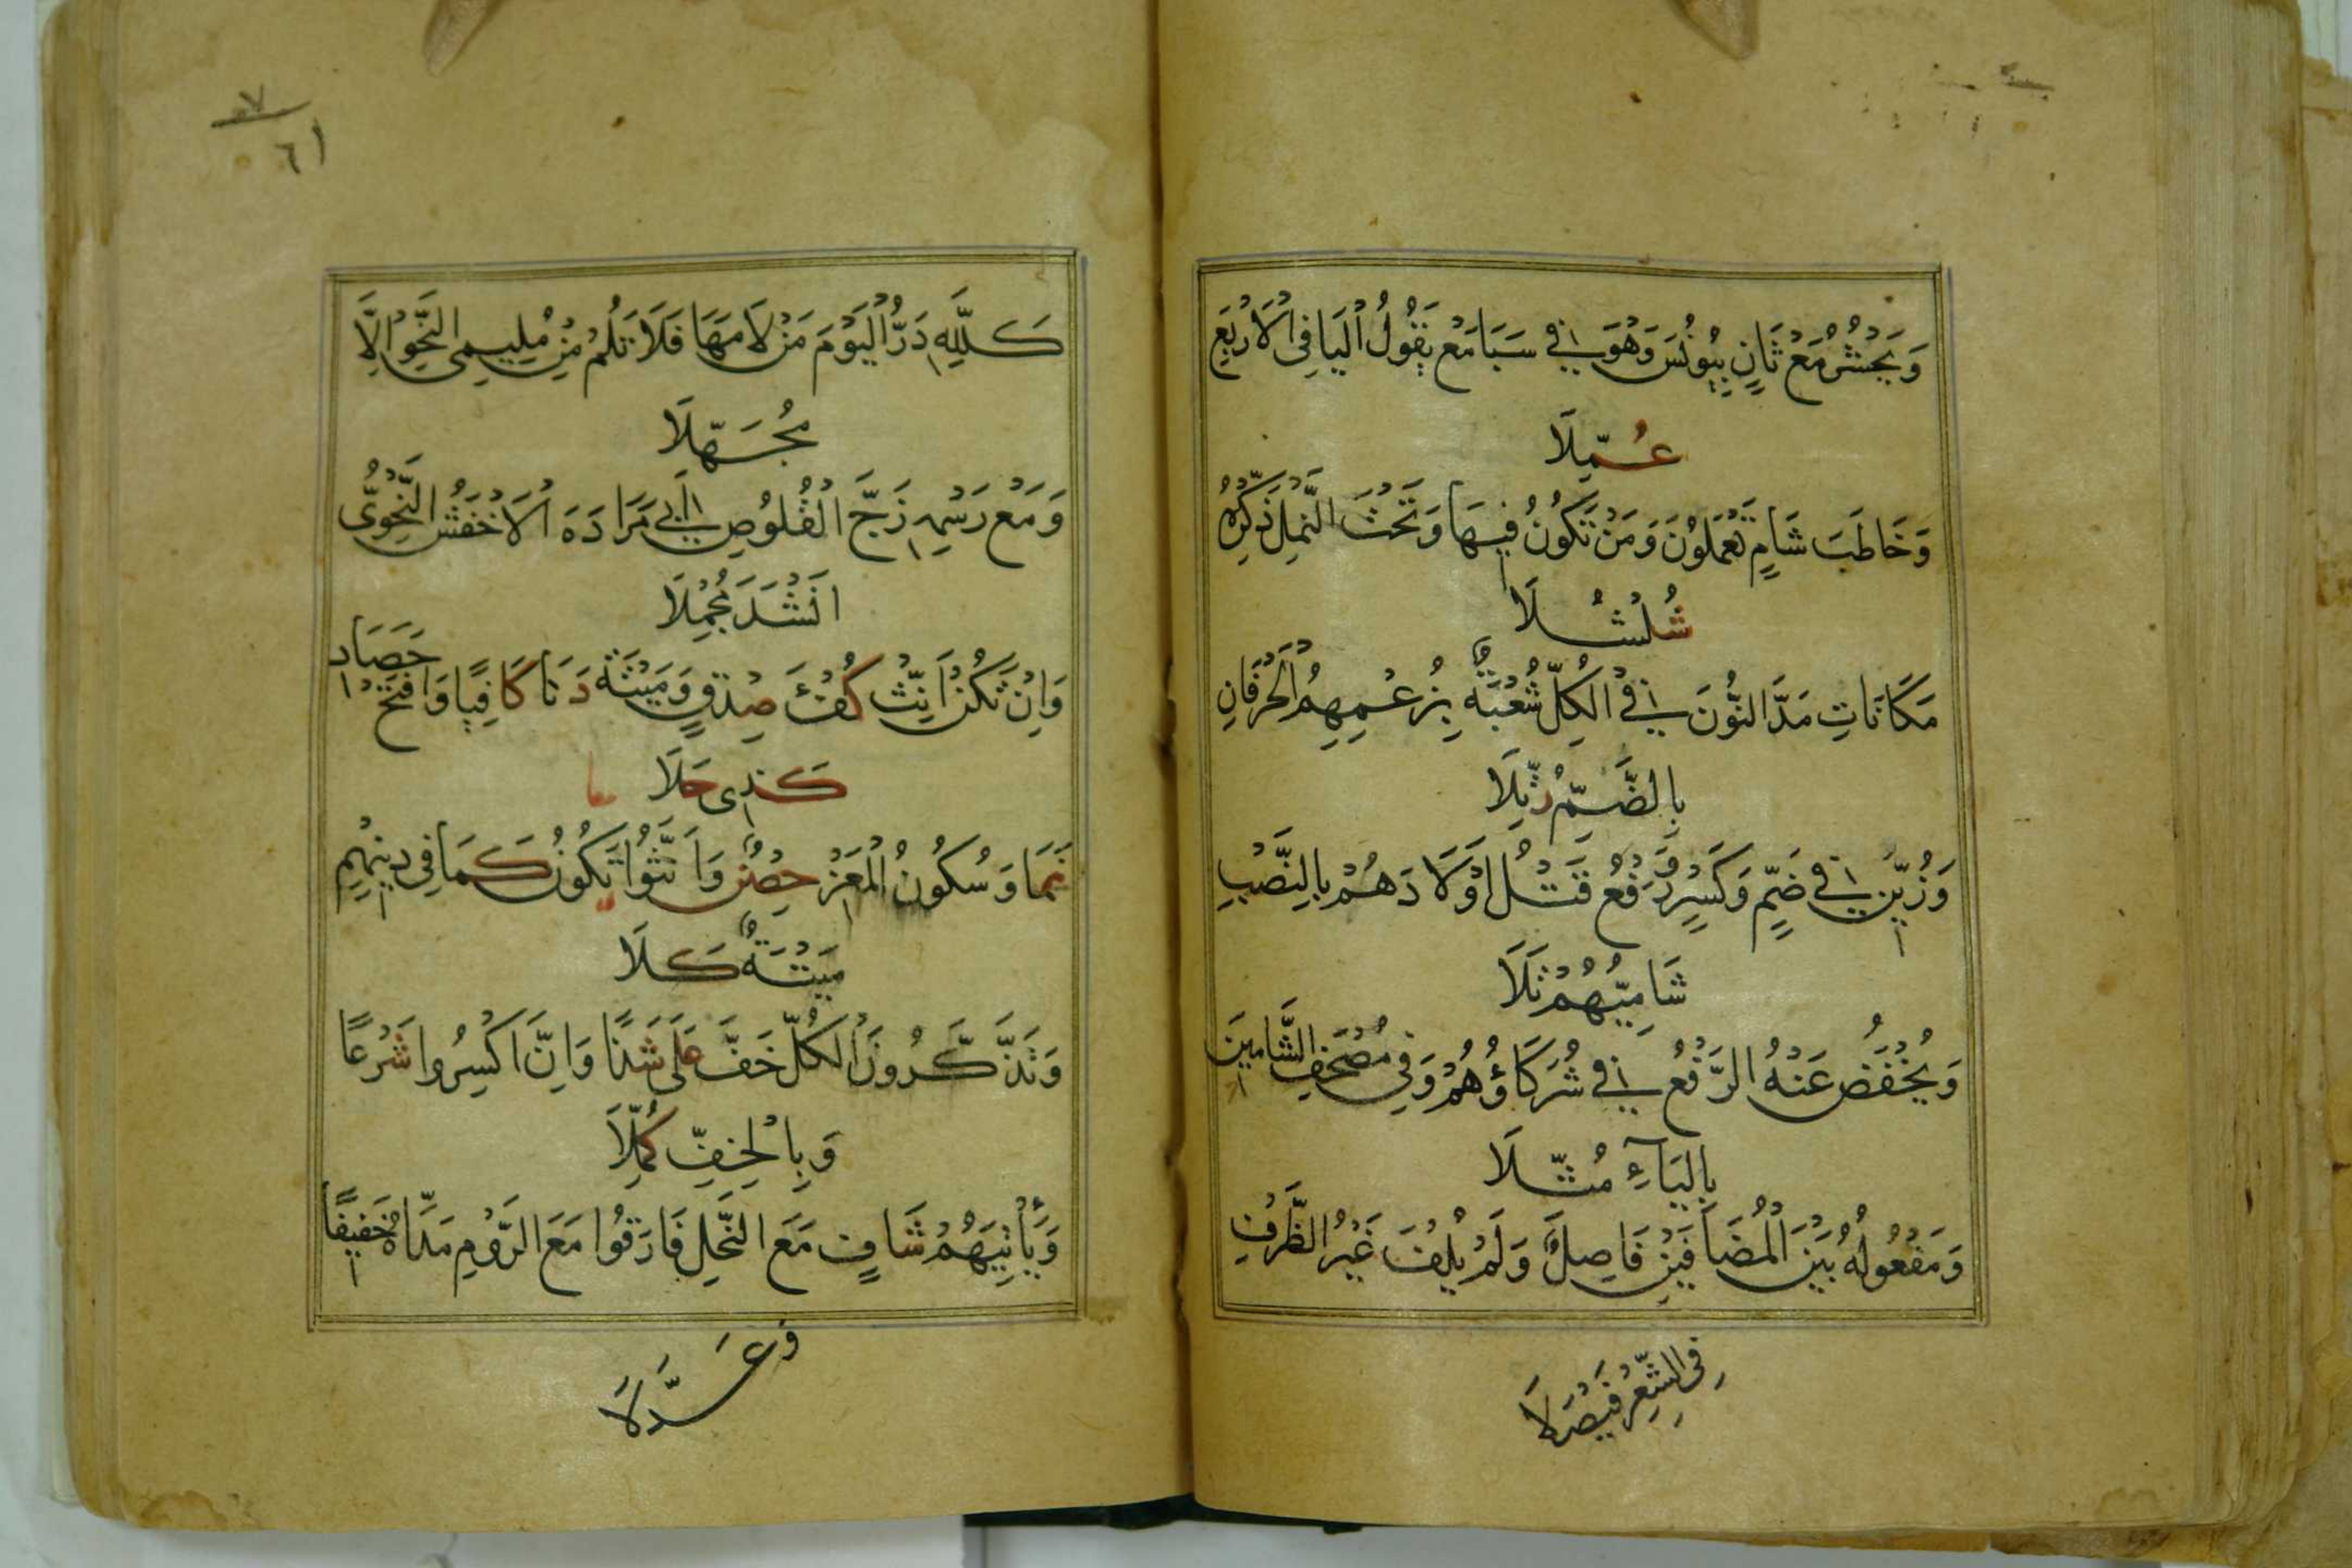 وَيَحْشُرُ مَعْ ثَانٍ بِيُونُسَ وَهُوَ فِي سَبَا مَعْ يَقُولُ الْيَا فِي الْاَرْبَعِ
عُمِّلَا
وَخَاطَبَ شَامٍ تَعْمَلُونَ وَمَنْ تَكُونُ فِيهَا وَتَحْتَ النَّمْلِ ذَكِّرْهُ
شُلْشُلَا
مَكَانَاتِ مَدَّ النُّونَ فِي الْكُلِّ شُعْبَةٌ بِزُعْمِهِمُ الْحَرْفَانِ
بِالضَّمِّ رُتِّلَا
وَزُيِّنَ فِي ضَمٍّ وَكَسْرٍ وَرَفْعُ قَتْلُ اَوْلَادَهُمْ بِالنَّصْبِ
شَامِيُّهُمْ تَلَا
وَيُخْفَضُ عَنْهُ الرَّفْعُ فِي شُرَكَاؤُهُمْ وَفِي مُصْحَفِ الشَّامِينَ
بِالْيَآءِ مُثِّلَا
وَمَفْعُولُهُ بَيْنَ الْمُضَافَيْنِ فَاصِلٌ وَلَمْ يُلْفَ غَيْرُ الظَّرْفِ
فِي الشِّعْرِ فَيْصَلَا
٧
٦١
كَلِلَّهِ دَرُّ الْيَوْمَ مَنْ لَامَهَا فَلَا تَلُمْ مِنْ مُلِيمِي النَّحْوِ اِلَّا
مُجَهِّلَا
وَمَعْ رَسْمِهِ زَجَّ الْقَلُوصِ اَبِي مَزَادَهَ الْاَخْفَشُ النَّحْوِيُّ
اَنْشَدَ مُجْمِلَا
وَاِنْ تَكُنْ اَنِّثْ كُفْؤَ صِدْقٍ وَمَيْتَةٌ دَنَا كَافِيًا وَافْتَحْ حَصَادِ
كَذِي حَلَا
نَمَا وَسُكُونُ الْمَعْزِ حِصْنٌ وَاَنَّثُوا تَكُونُ كَمَا فِي دِينِهِمْ
مَيْتَةٌ كَلَا
وَتَذَّكَّرُونَ الْكُلُّ خَفَّ عَلَى شَذًا وَاِنَّ اكْسِرُوا شَرْعًا
وَبِالْخِفِّ كُمِّلَا
وَيَأْتِيَهُمْ شَافٍ مَعَ النَّحْلِ فَارَقُوا مَعَ الرُّومِ مَدَّاهُ خَفِيفًا
وَعَدَّلَا